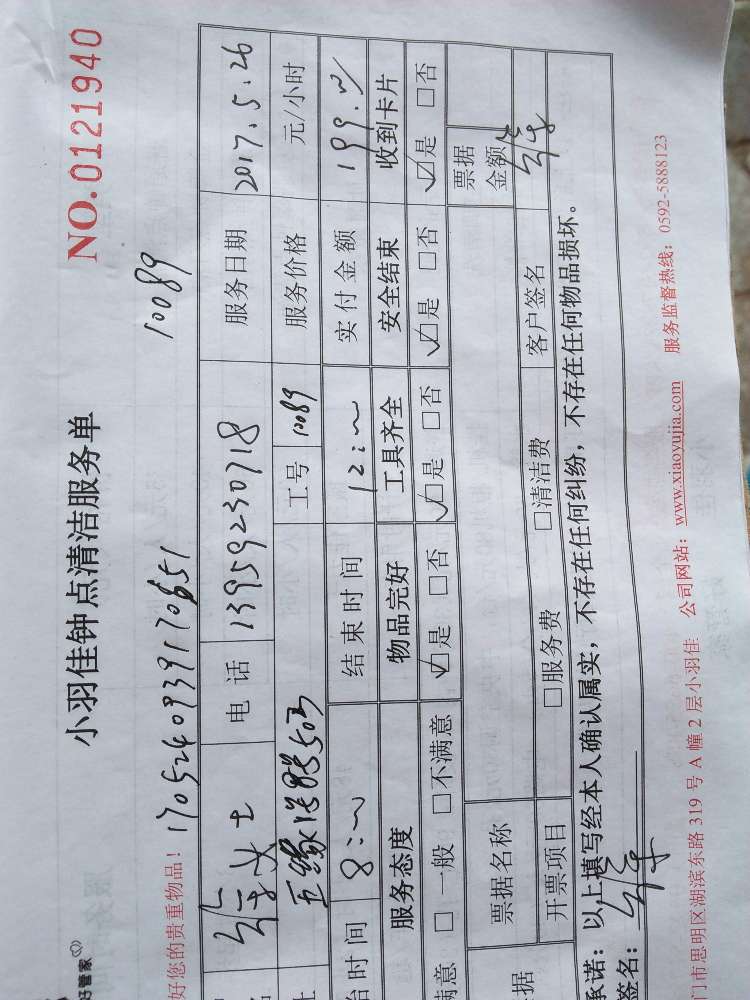 小羽佳钟点清洁服务单
NO.0121940
好管家
好您的贵重物品! 1705240939170651 10089
女士 电话 13959230718 服务日期 2017.5.26
503 工号 10089 服务价格 元/小时
始时间 8:~ 结束时间 12:~ 实付金额 199.
服务态度 物品完好 工具齐全 安全结束 收到卡片
满意 □一般 □不满意 ☑是 □否 ☑是 □否 ☑是 □否 ☑是 □否
据 票据名称 票据金额
开票项目 □服务费 □清洁费 客户签名
承诺:以上填写经本人确认属实,不存在任何纠纷,不存在任何物品损坏。
签名:
门市思明区湖滨东路 319 号 A 幢 2 层小羽佳 公司网站:www.xiaoyujia.com 服务监督热线:0592-5888123